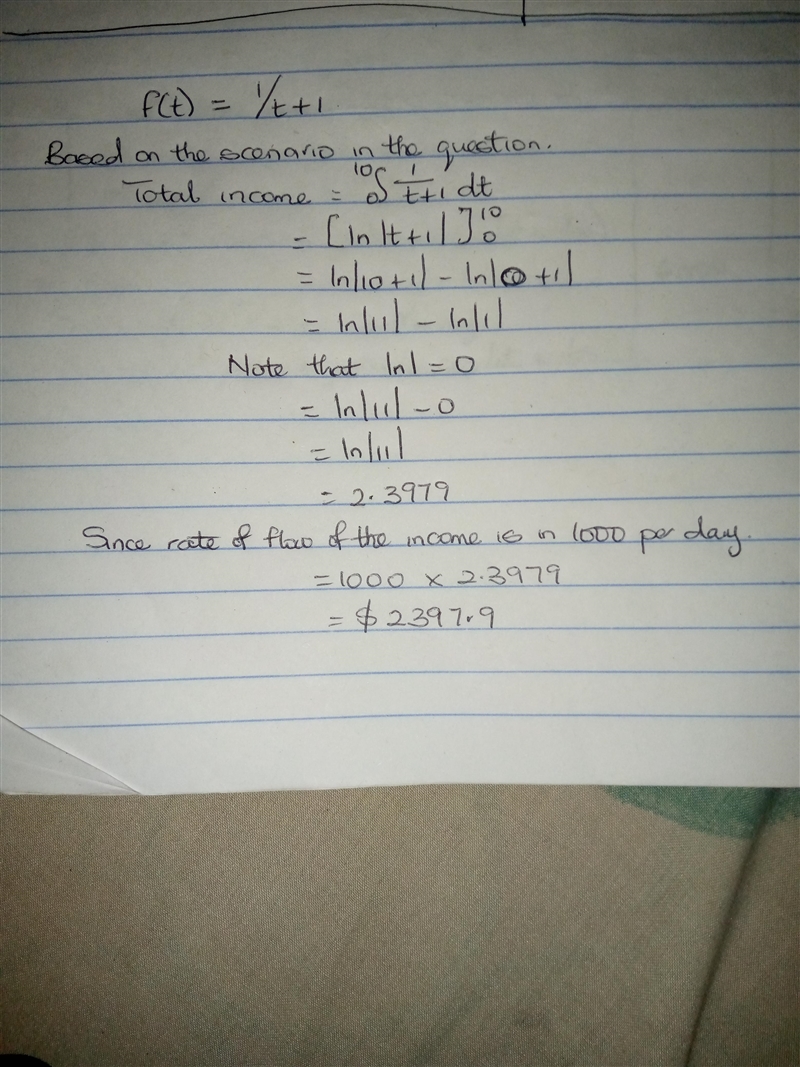 f(t) = 1/t+1
Based on the scenario in the question.
Total income = ₀¹⁰∫ 1/t+1 dt
= [ln|t+1|]₀¹⁰
= ln|10+1| - ln|0+1|
= ln|11| - ln|1|
Note that ln1 = 0
= ln|11| - 0
= ln|11|
= 2.3979
Since rate of flow of the income is in 1000 per day.
= 1000 × 2.3979
= $ 2397.9